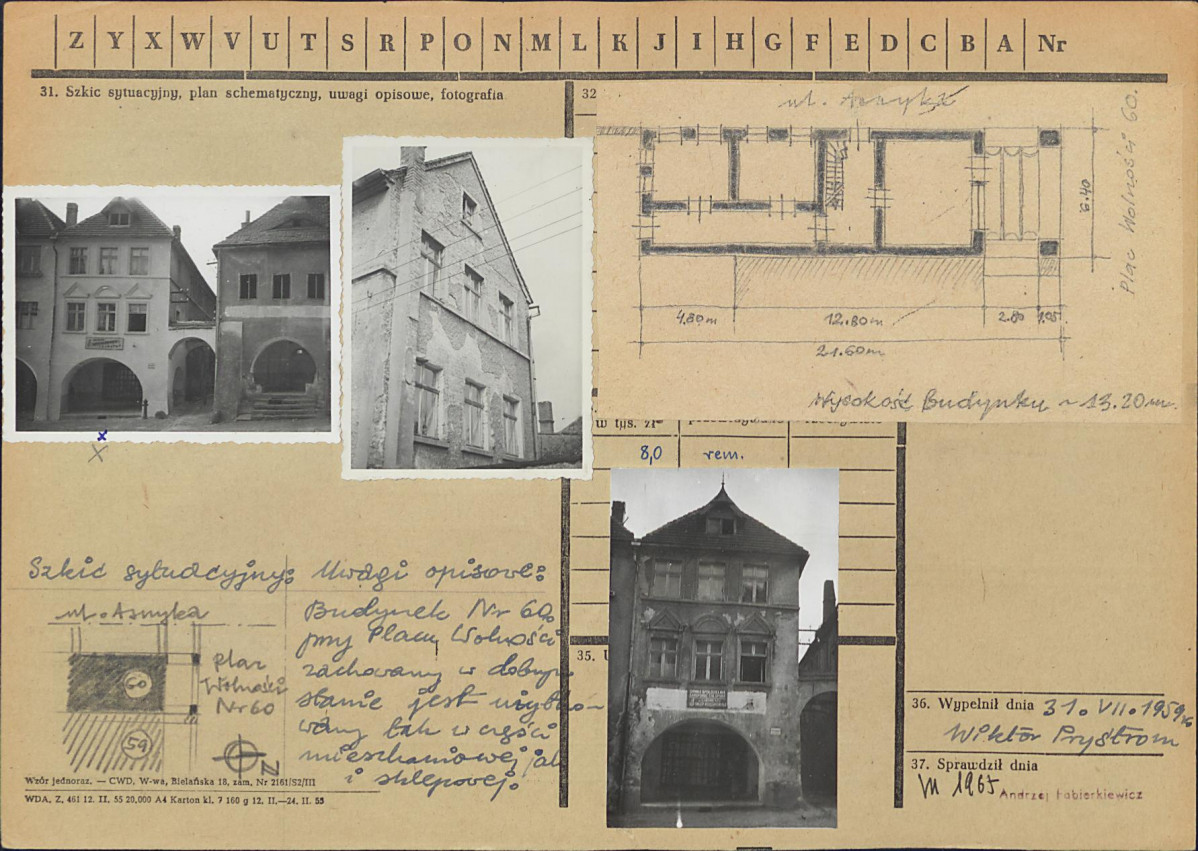 Z Y X W V U T S R P O N M L K J I H G F E D C B A Nr
31. Szkic sytuacyjny, plan schematyczny, uwagi opisowe, fotografia
32
ul. Asnyka
Plac Wolności 60.
8.40
4.80m 12.80m 2.80 1.05
21.60m
Wysokość Budynku ~ 13.20m.
w tys. zł
8,0 rem.
Szkic sytuacyjny: Uwagi opisowe:
ul. Asnyka
plac
Wolności
Nr 60
60
59
N
Budynek Nr 60
przy Placu Wolności
zachowany w dobrym
stanie jest użytko-
wany tak w części
mieszkaniowej jak
i sklepowej.
35. U
36. Wypełnił dnia 31. VII. 1959
Wiktor Prystrom
37. Sprawdził dnia
VII 1965 Andrzej Łabierkiewicz
Wzór jednoraz. — CWD, W-wa, Bielańska 18, zam. Nr 2161/52/III
WDA. Z. 461 12. II. 55 20,000 A4 Karton kl. 7 160 g 12. II.—24. II. 55